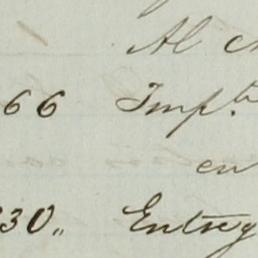 Al
66 Imp.to
en
30,, Entreg